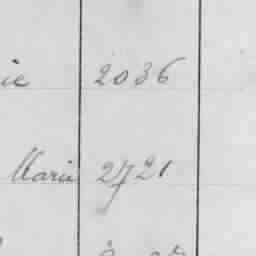 ie 2036
Marie 2721